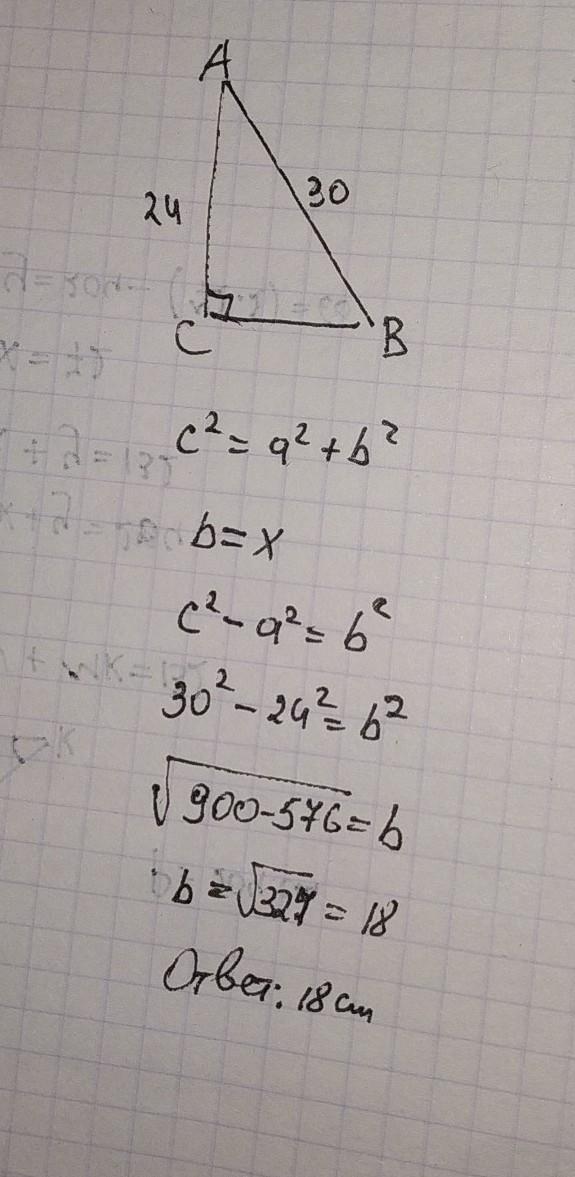 A
24
30
C
B
c² = a² + b²
b = x
c² - a² = b²
30² - 24² = b²
√900-576 = b
b = √324 = 18
Ответ: 18 см